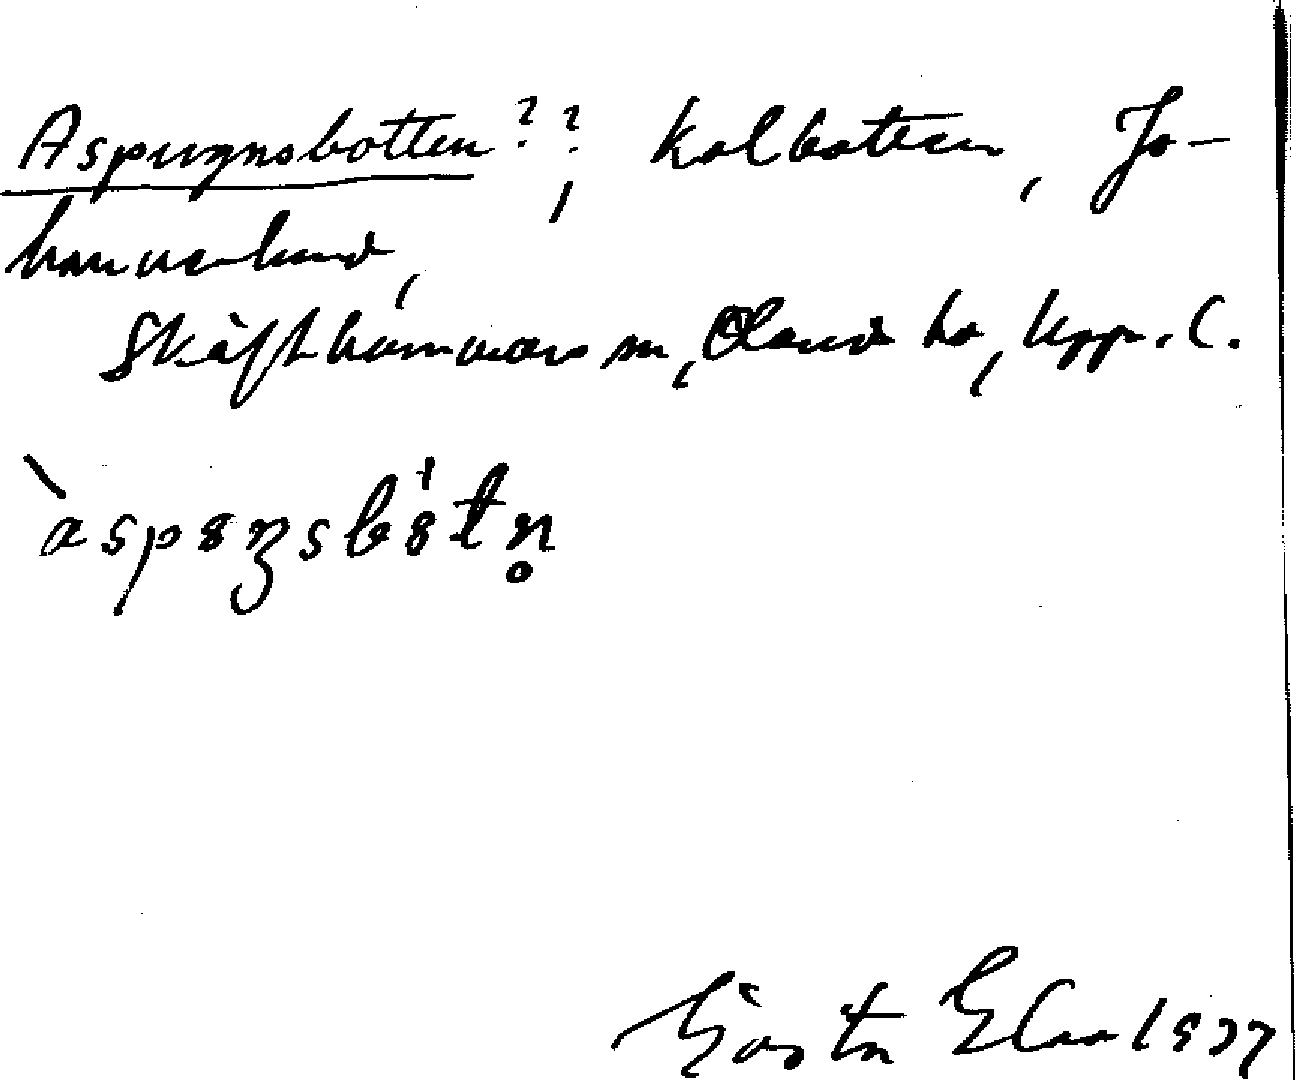 Aspugnsbotten??, kolbotten, Jo-
hanneslund,
Skäfthammars sn, Olands hd, Uppl.
Gösta Elas 1937